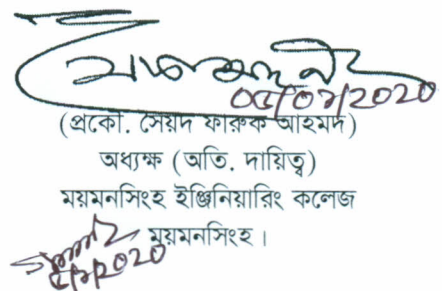 ০৫/০২/2020
(প্রকৌ. সৈয়দ ফারুক আহমদ)
অধ্যক্ষ (অতি. দায়িত্ব)
ময়মনসিংহ ইঞ্জিনিয়ারিং কলেজ
ময়মনসিংহ।